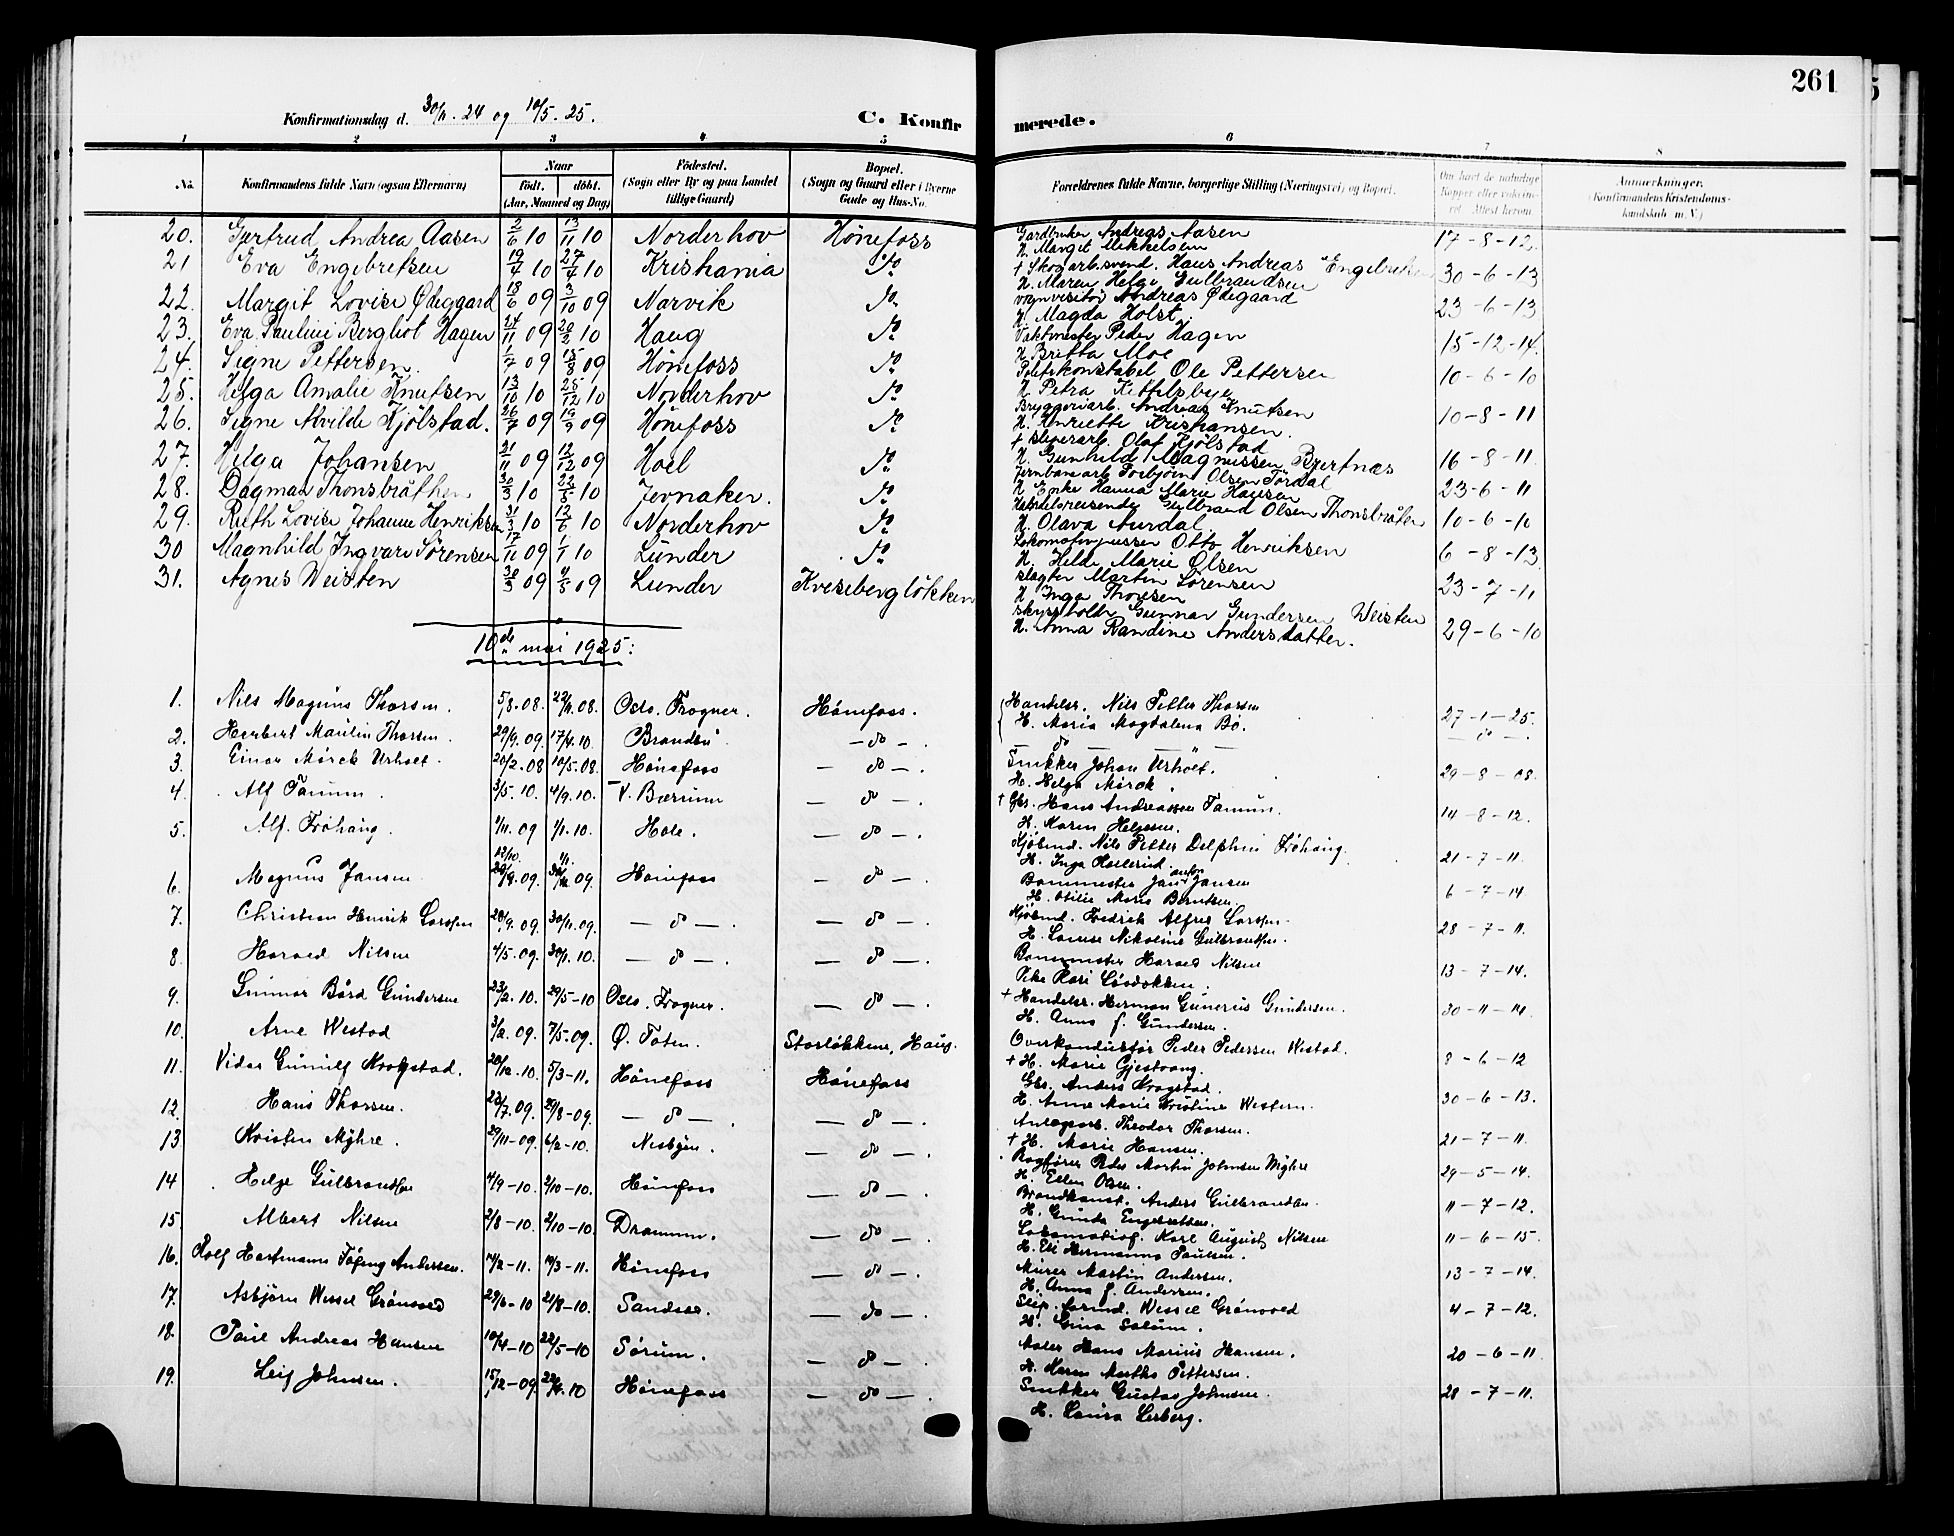 261
Konfirmationsdag d. 30/11. 24 og 10/5. 25.
C. Konfirmerede.
1 2 3 4 5 6 7 8
No.
Konfirmandens fulde Navn (ogsaa Efternavn)
Naar
født. døbt.
(Aar, Maaned og Dag)
Fødested.
(Sogn eller By og paa Landet
tillige Gaard)
Bopæl.
(Sogn og Gaard eller i Byerne
Gade og Hus-No.
Forældrenes fulde Navne, borgerlige Stilling (Næringsvei) og Bopæl.
Om havt de naturlige
Kopper eller vaccineret. Attest herom.
Anmerkninger.
(Konfirmandens Kristendomskundskab m. V.)
20. Gjertrud Andrea Aasen 2/6 10 13/11 10 Norderhov Hønefoss Gardbruker Andreas Aasen 17-8-12
H. Margit Mikkelsen
21 Eva Engebretsen 19/4 10 27/4 10 Kristiania do † Skogarb.svend. Hans Andreas Engebretsen 30-6-13
H. Maren Helge Gulbrandsen
22. Margit Lovise Ødegaard 18/6 09 3/10 09 Narvik do vognvisitør Andreas Ødegaard 23-6-13
H. Magda Holst.
23. Eva Pauline Bergliot Hagen 24/11 09 20/2 10 Haug do Taktmester Peder Hagen 15-12-14.
H. Britta Moe
24. Signe Pettersen. 1/7 09 15/8 09 Hønefoss do Politikonstabel Ole Pettersen 10-6-10
H. Petra Kittelsbye
25. Helga Amalie Knutsen 13/10 10 25/12 10 Norderhov do Bryggeriarb. Andreas Knutsen 10-8-11
H. Henriette Kristiansen.
26. Signe Alvilde Kjölstad. 26/7 09 19/9 09 Hønefoss do † sliperarb. Olaf Kjölstad
H. Gunhild Magnussen Bjertnæs 16-8-11
27. Helga Johansen 21/11 09 12/12 09 Hoel do Jernbanearb Torbjörn Olsen Tördal 23-6-11
H. Enke Hanna Marie Hansen
28. Dagmar Thonsbråthen 30/3 10 22/5 10 Jevnaker. do Handelsreisende Gulbrand Olsen Thonsbråten 10-6-10
H. Olava Aurdal
29. Ruth Lovise Johanne Henriksen 31/3 10 12/6 10 Norderhov do Lokomotivpusser Otto Henriksen 6-8-13
H. Hilde Marie Olsen
30 Magnhild Ingvare Sørensen 17/11 09 1/1 10 Lunder do slagter Martin Sørensen 23-7-11
H. Inga Thoresen
31. Agnes Weisten 30/3 09 4/5 09 Lunder Kvesebergløkken skyssholdr. Gunnar Gundersen Weisten 29-6-10
H. Anna Randine Andersdatter.
10de mai 1925:
1. Nils Magnus Thorsen. 5/8.08. 22/11.08. Oslo. Frogner. Hønefoss. Handelsr. Nils Petter Thorsen 27-1-25.
H. Maria Magdalena Bø.
2. Herbert Maulin Thorsen. 29/9.09. 17/4.10. Brandbu. -do-. — do — — do —.
3. Einar Mørck Urholt. 20/2.08 10/5.08. Hønefoss — do —. Snekker Johan Urholt. 29-8-08.
H. Helga Mørck.
4. Alf Tanum. 3/5.10. 4/9.10. V. Bærum — do —. † Gbr. Hans Andreassen Tanum. 14-8-12.
H. Karen Helgesen.
5. Alf. Frøhaug. 9/11.09 1/1.10. Hole. — do —. Kjøbmd. Nils Petter Delphin Frøhaug. 21-7-11.
H. Inga Hollerud.
6. Magnus Jansen Hønefoss — do —. Bommester Jan Anton Jansen 6-7-14
H. Otilie Marie Berntsen.
7. Christian Henrik Larssen 20/9.09. 30/11.09. — do —. — do —. Kjøbmd. Fredrik Alfred Larssen. 28-7-11.
H. Louise Nikoline Gulbrandsen.
8. Harald Nilsen 4/5.09. 30/1.10. — do —. — do —. Bommester Harald Nilsen 13-7-14.
Pike Kari Løvdokken.
9. Gunnar Bård Gundersen 23/2.10. 29/5-10 Oslo, Frogner. — do —. † Handelsr. Herman Gunerius Gundersen. 30-11-14.
H. Anna f. Gundersen.
10. Arne Westad 3/2.09. 7/5-09. Ø. Toten. Storløkken, Haug. Overkonduktør Peder Pedersen Westad. 8-6-12
† H. Marie Gjestvang.
11. Vidar Gunulf Krogstad. 20/12.10. 5/3-11. Hønefoss Hønefoss Gbr. Anders Krogstad. 30-6-13.
H. Anne Marie Kristine Western.
12. Hans Thorsen. 23/7.09. 29/8-09. — do —. — do —. Anlægsarb. Theodor Thorsen. 21-7-11.
† H. Marie Hansen.
13 Kristen Myhre. 29/11-09. 6/2-10. Nesbyen. — do —. Rogfører Peder Martin Johnsen Myhre 29-5-14.
H. Ellen Olsen.
14 Helge Gulbrandsen 4/9-10. 2/10-10. Hønefoss — do —. Brandkonst. Anders Gulbrandsen. 11-7-12.
H. Gunda Engebretsen.
15. Albert Nilsen 2/8-10. 2/10-10. Drammen. — do —. Lokomotivf. Karl August Nilsen 11-6-15.
H. Eli Hermanna Paulsen.
16. Rolf Hartmann Andersen. 14/2-11. 19/3-11. Hønefoss — do —. Murer Martin Andersen. 13-7-14.
H. Anna f. Andersen.
17. Asbjørn Wessel Grønvold 29/6-10 21/8-10. Sandsvær. — do —. Slip.formd. Wessel Grønvold 4-7-12.
H. Gina Solum.
18. Paul Andreas Hansen 10/4-10 22/5-10 Sørum. — do —. Maler Hans Marius Hansen. 20-6-11
H. Karen Marthe Pettersen.
19. Leif Johnsen. 15/12-09. Hønefoss — do —. Snekker Gustav Johnsen. 28-7-11.
H. Laura Lerberg.